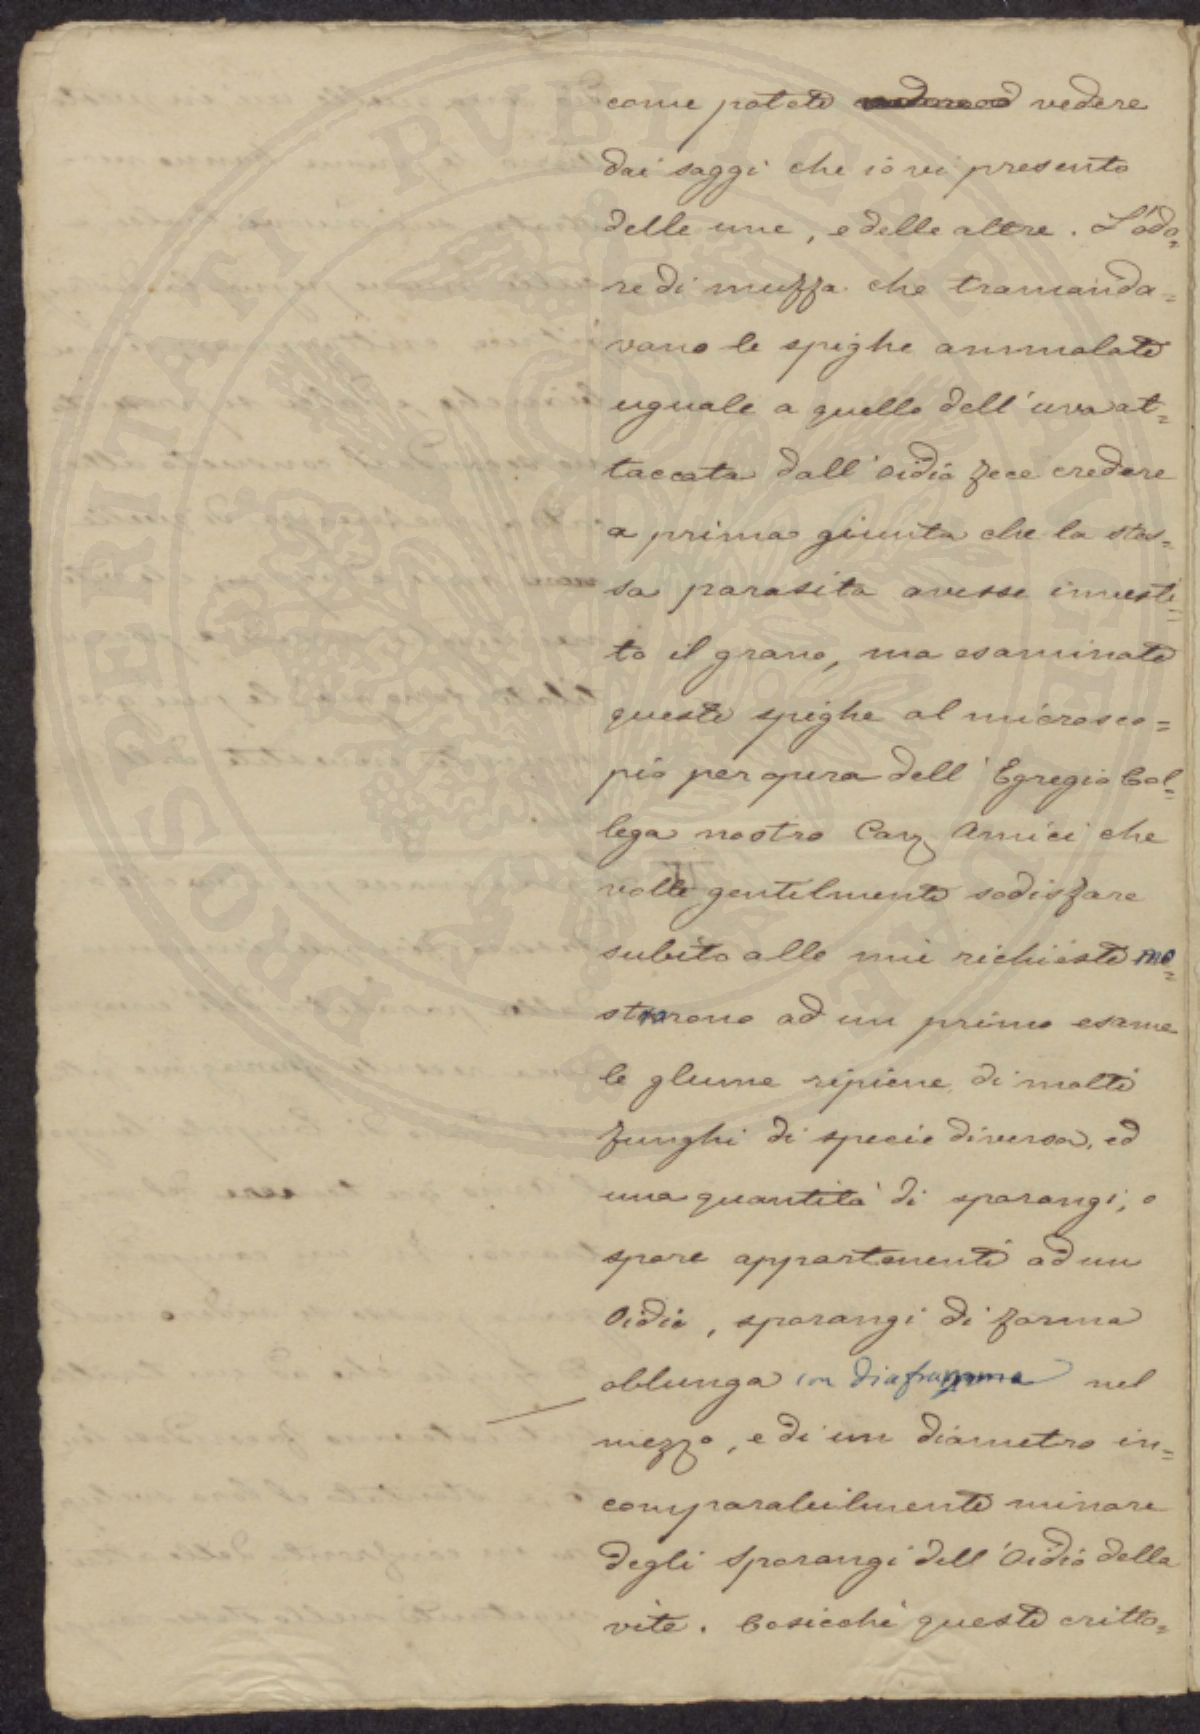 come potete vedere
dai saggi che io vi presento
delle une, e delle altre. L'odo=
re di muffa che tramanda=
vano le spighe ammalate
uguale a quello dell'uva at=
taccata dall'oidio fece credere
a prima giunta che la stes=
sa parasita avesse investi=
to il grano, ma esaminate
queste spighe al microsco=
pio per opera dell'Egregio Col=
lega nostro Cav Amici che
volle gentilmente sodisfare
subito alle mie richieste mo=
strarono ad un primo esame
le glume ripiene di molti
funghi di specie diversa, ed
una quantità di sporangi, o
spore appartenenti ad un
Oidio, sporangi di forma
oblunga con diaframma nel
mezzo, e di un diametro in=
comparabilmente minore
degli Sporangi dell'Oidio della
vite. Cosicché queste critto=
PVBLICAE
PROSPERITATI